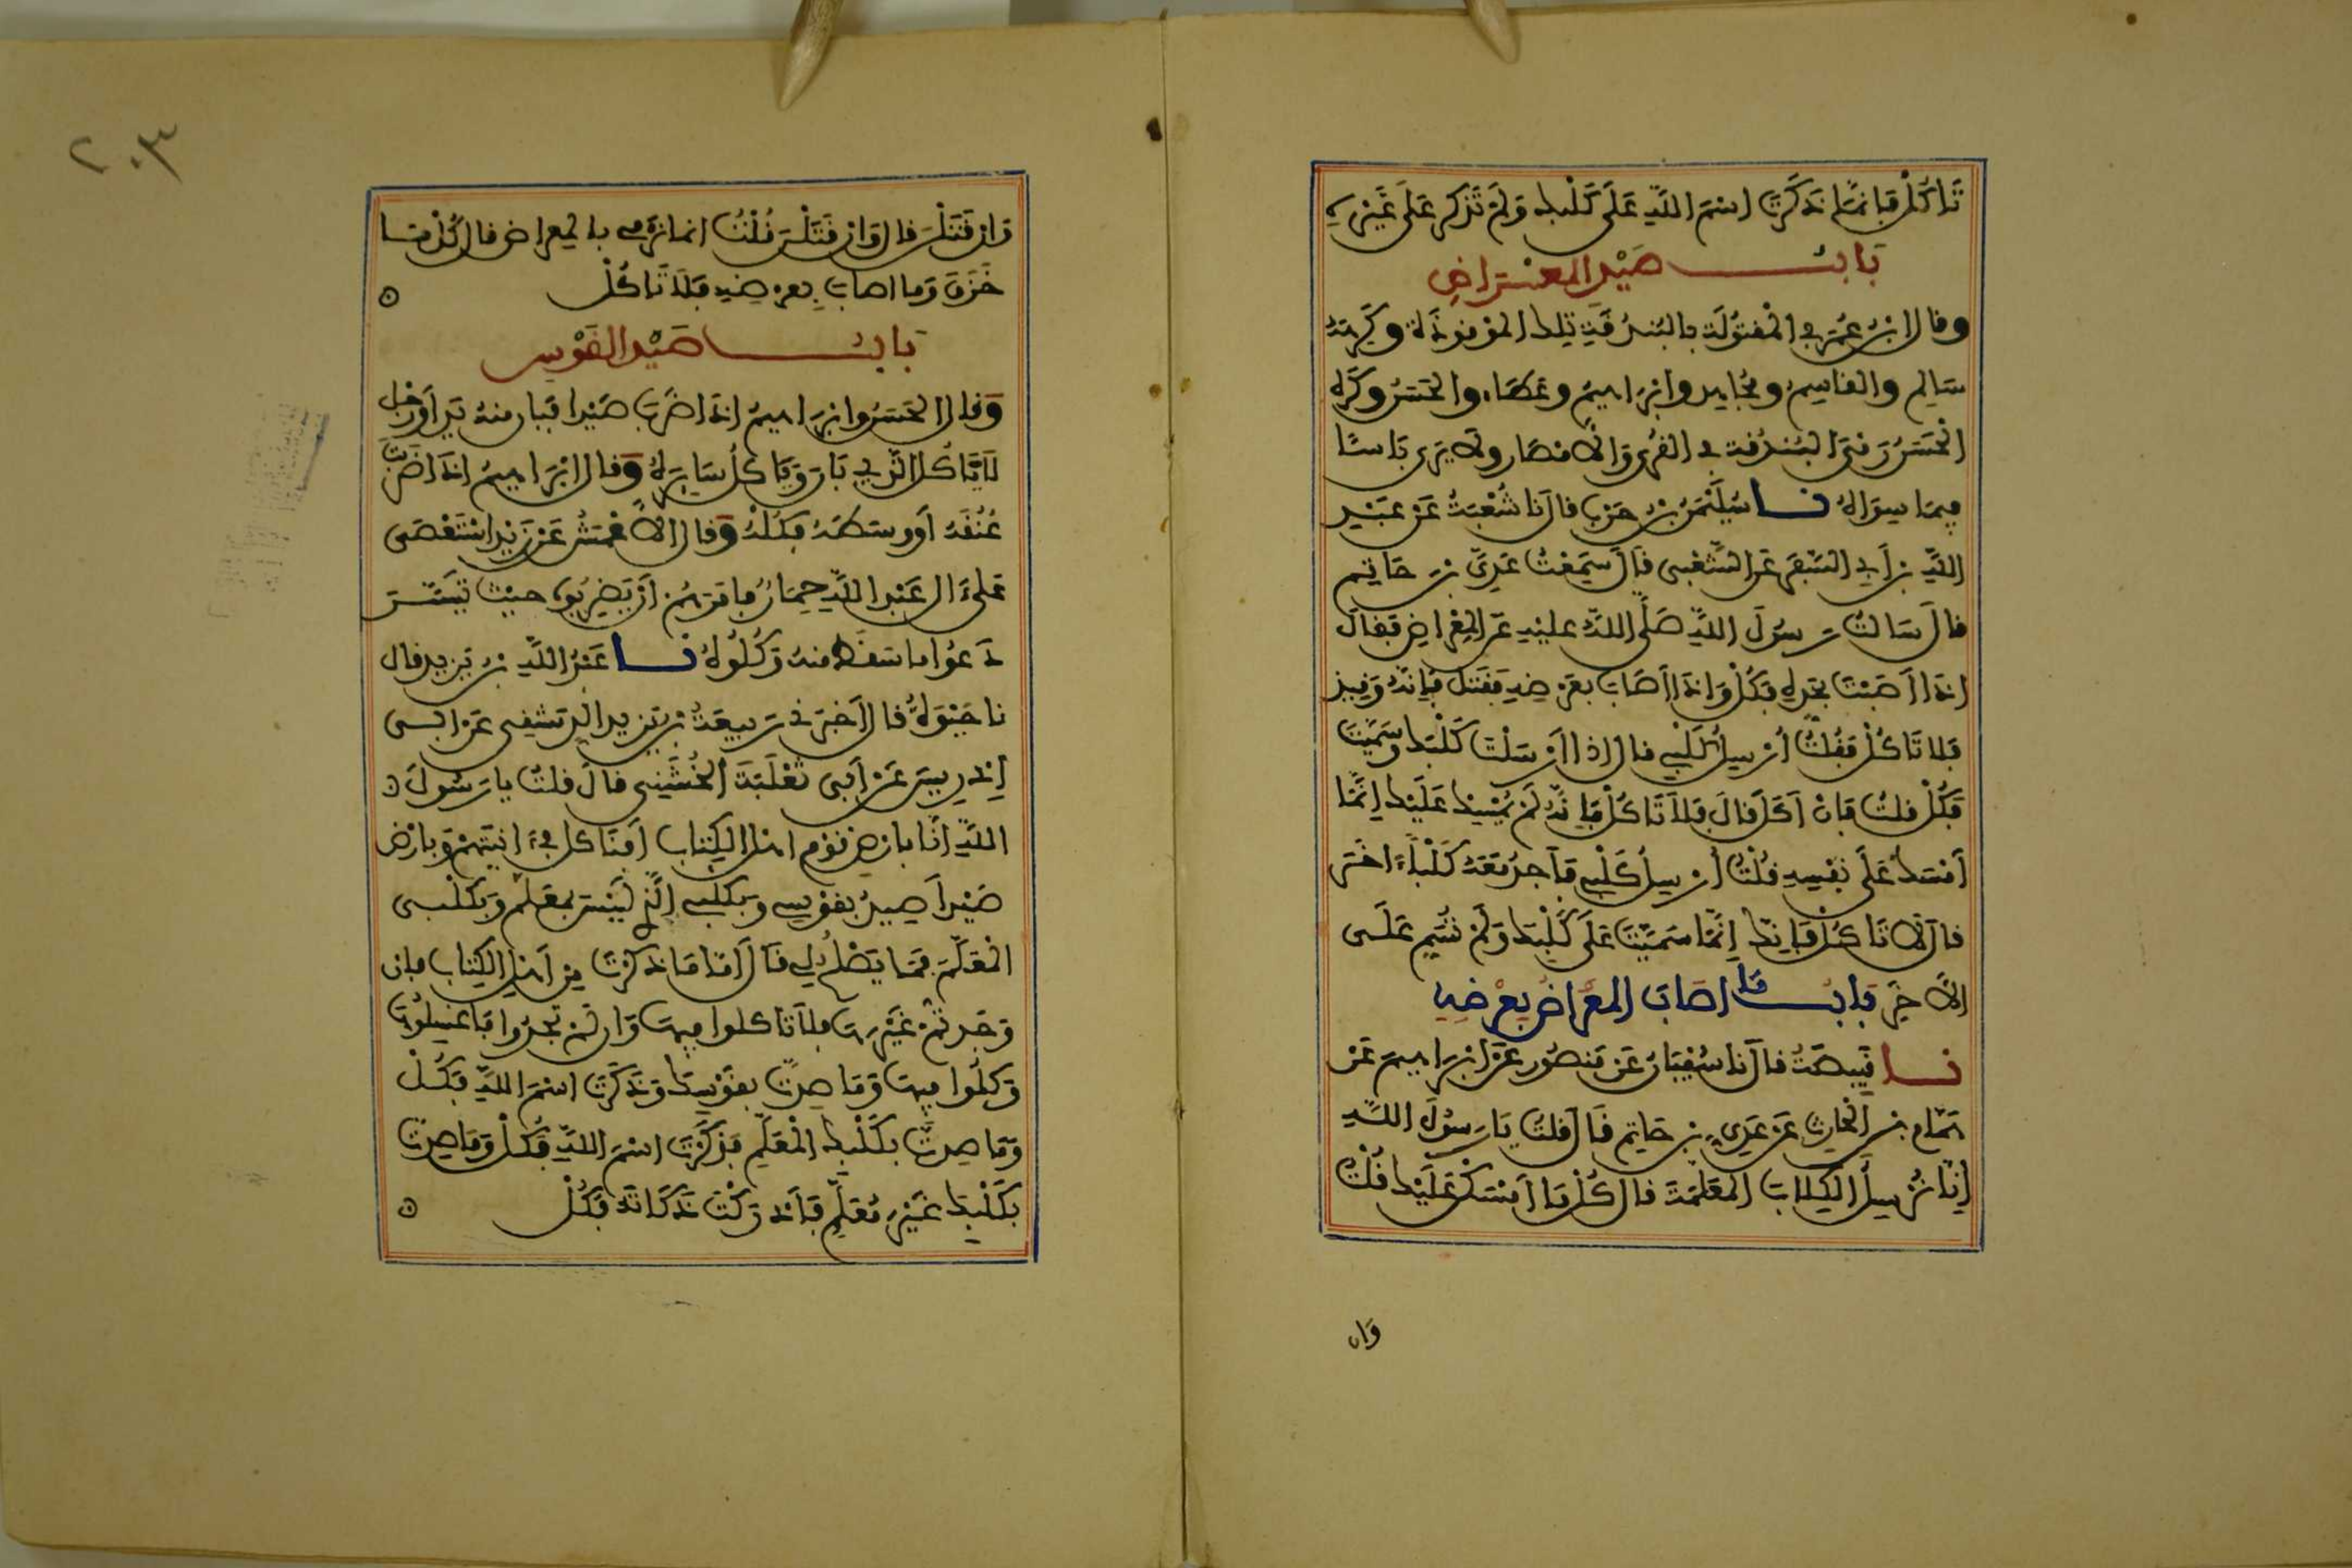 تَاكُلْ فَإنمَّا ذَكَرْتَ اسْمَ اللَّهِ عَلَى كَلْبِكَ وَلَمْ تَذْكُر عَلَى غَيْرِهِ
بَابُ صَيْدِ المعْرَاضِ
وقال ابنُ عُمَرَ في المَقتُولَةِ بِالبُندُقَةِ تِلكَ المَوْقوذَة وكَرِهَهُ
سَالِم والقاسِمُ ومُجَاهِد وابْرَاهِيمُ وعَطَاء والحَسَنُ وكَرِهَ
الْحَسَنُ رَمْيَ البُنْدُقَة في القُرَى وَالأمْصَار ولا يَرَى بَاسًا
فِيمَا سِوَاهُ نا سُلَيْمَنُ بْنُ حَرْبٍ قال نَا شُعْبَةُ عَنْ عَبْدِ
اللَّهِ بنِ أَبِي السَّفَرِ عَنِ الشَّعْبِي قَالَ سَمِعْتُ عَدِيَّ بْنَ حَاتِمٍ
قالَ سَالتُ رَسُولَ اللَّهِ صَلَّى اللَّهُ عليْهِ عَنِ المِعْرَاضِ فَقَالَ
اذَا أَصَبْتَ بحَدِّهِ فَكُلْ وَاذَا أَصَابَ بعَرْضِهِ فَقَتَلَ فَإنَّهُ وَقِيذ
فَلا تَاكُلْ فَقُلْتُ أُرْسِلُ كَلْبِي قال اذا أَرْسَلْتَ كَلْبَكَ وسَمَّيْتَ
فَكُلْ قلتُ فَإنْ أَكَلَ قَالَ فَلاَ تَاكُلْ فَإنَّهُ لَمْ يُمْسِكْ عَلَيْكَ إنَّمَا
أَمْسَكَ عَلَى نَفْسِهِ قُلْتُ أُرْسِلُ كَلْبِي فَأَجِدُ مَعَهُ كَلْبًا ءَاخَرَ
قال لا تَاكُلْ فَإنَّكَ إنَّمَا سَمَّيْتَ عَلَى كَلْبِكَ وَلَمْ تُسَمِّ عَلَى
الآخَرِ بَابُ مَا اصَابَ المِعْرَاضُ بِعَرْضِهِ
نا قَبِيصَةُ قال نا سُفْيَانُ عَنْ مَنصُورٍ عَنْ ابْرَاهِيمَ عَنْ
هَمَّامِ بْنِ الْحَارِثِ عَنْ عَدِيِّ بْنِ حَاتِم قَالَ قلتُ يَا رَسُولَ اللَّهِ
إنَّا نُرْسِلُ الكِلاَبَ المعَلَّمَةَ قال كُلْ مَا أَمْسَكْنَ عَلَيْكَ قُلْتُ
وَان
٢٠٣
وَان قَتَلْنَ قال وَان قَتَلْنَ قُلْتُ انا نَرْمِي بالمِعراضِ قال كُلْ مَا
خَزَقَ وَمَا اصَابَ بِعَرْضِهِ فَلاَ تَاكُلْ
بَابُ صَيْدِ القَوْسِ
وَقال الحَسَنُ وابْرَاهِيمُ اذَا ضَرَبَ صَيْدا فَبَانَ مِنهُ يَد اوْ رِجْل
لاَ يَاكُل الَّذِي بَانَ وَيَاكُلُ سَايِرَهُ وَقال ابْرَاهِيمُ اذَا ضَرَبْتَ
عُنُقَهُ أَوْ وسَطَهُ فَكُلْهُ وَقال الاعْمَشُ عَنْ زَيْدٍ اسْتَعْصَى
عَلَى ءال عَبْدِ اللَّهِ حِمَارٌ فَامَرَهُمْ أَنْ يَضْرِبُوهُ حيْثُ تيَسَّرَ
دَعُوا ما سَقَطَ منهُ وَكُلُوهُ نا عَبْدُ اللَّهِ بْنُ يَزِيدَ قال
نا حَيْوَةُ قال أَخْبَرَنِي رَبِيعَةُ بْنُ يَزِيدَ الدِّمَشْقِي عَنْ ابي
إدْرِيسَ عَنْ أَبِي ثَعْلَبَةَ الخُشَنِي قالَ قلتُ يا رَسُولَ
اللَّهِ إنَّا بارْضِ قَوْمٍ اهْلِ الكِتاب أَفَنَاكل في ءانيَتِهِمْ وَبارْضِ
صَيْدٍ أَصِيدُ بقَوْسِي وَبكَلْبِي الَّذِي لَيْسَ بمعَلَّمٍ وَبكَلْبِي
الْمُعَلَّمِ فَمَا يَصْلُحُ لِي قالَ أَمَّا مَا ذَكَرْتَ مِن أَهْلِ الكِتَابِ فان
وَجَدتُّمْ غَيْرَهَا فلاَ تَاكلوا فِيهَا وَان لمْ تَجِدُوا فَاغْسِلُوهَا
وَكلُوا فِيهَا وَمَا صِدتَّ بقَوْسِكَ وَذَكَرْتَ اسْمَ اللَّهِ فَكُلْ
وَمَا صِدتَّ بكَلْبِكَ الْمُعَلَّمِ فَذَكَرْتَ اسْمَ اللَّهِ فَكُلْ وَمَا صِدتَّ
بكَلْبِكَ غَيْرِ مُعَلَّمٍ فَأَدْرَكْتَ ذَكَاتَهُ فَكُلْ